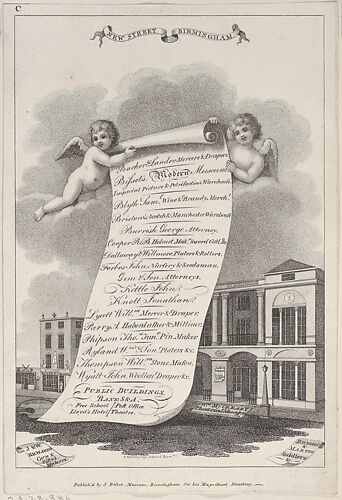 C
NEW STREET BIRMINGHAM.
Barker & Lander Mercers & Drapers.
Bissets, Modern Museum,
Imperial Picture & Petrifaction Warehouse.
Blyth Saml. Wine & Brandy Merchts.
Bristow's Scotch & Manchester Warehouse
Burrish George Attorney.
Cooper R. B. Helmet Mak.
Dallaway & Willmore, Platers & Rollers.
Forbes John, Nursery & Seedsman.
Gem & Son, Attorneys.
Kettle John
Knott Jonathan
Lyvett Willm. Mercer & Draper.
Parry A. Haberdasher & Milliner.
Phipson Thos. Junr. Pin Maker.
Ryland Wm. & Son, Platers &c.
Thompson Willm. Stone Mason.
Wyatt John, Woollen Draper &c.
PUBLIC BUILDINGS,
BANKS &c.
Free School Post Office
Lloyd's Hotel Theatre.
Publish'd by J. Bisset, Museum, Birmingham for his Magnificent Directory.